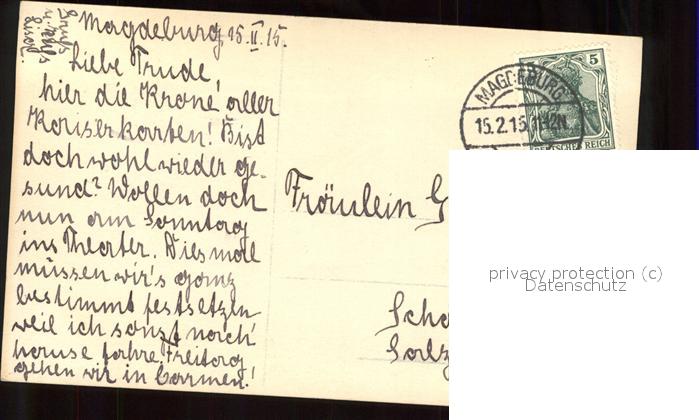 Gruß
u. Kuß
Liesel.
Magdeburg, 15.II.15.
Liebe Trude,
hier die Krone aller
Kaiserkarten! Bist
doch wohl wieder ge-
sund? Wollen doch
nun am Sonntag
ins Theater. Diesmal
müssen wir's ganz
bestimmt festsetzen
weil ich sonst nach
hause fahre. Freitag
gehen wir in Carmen!
5
MAGDEBURG
15.2.15. 11-12N.
DEUTSCHES REICH
Fräulein G
Scho
Salz
privacy protection (c)
Datenschutz